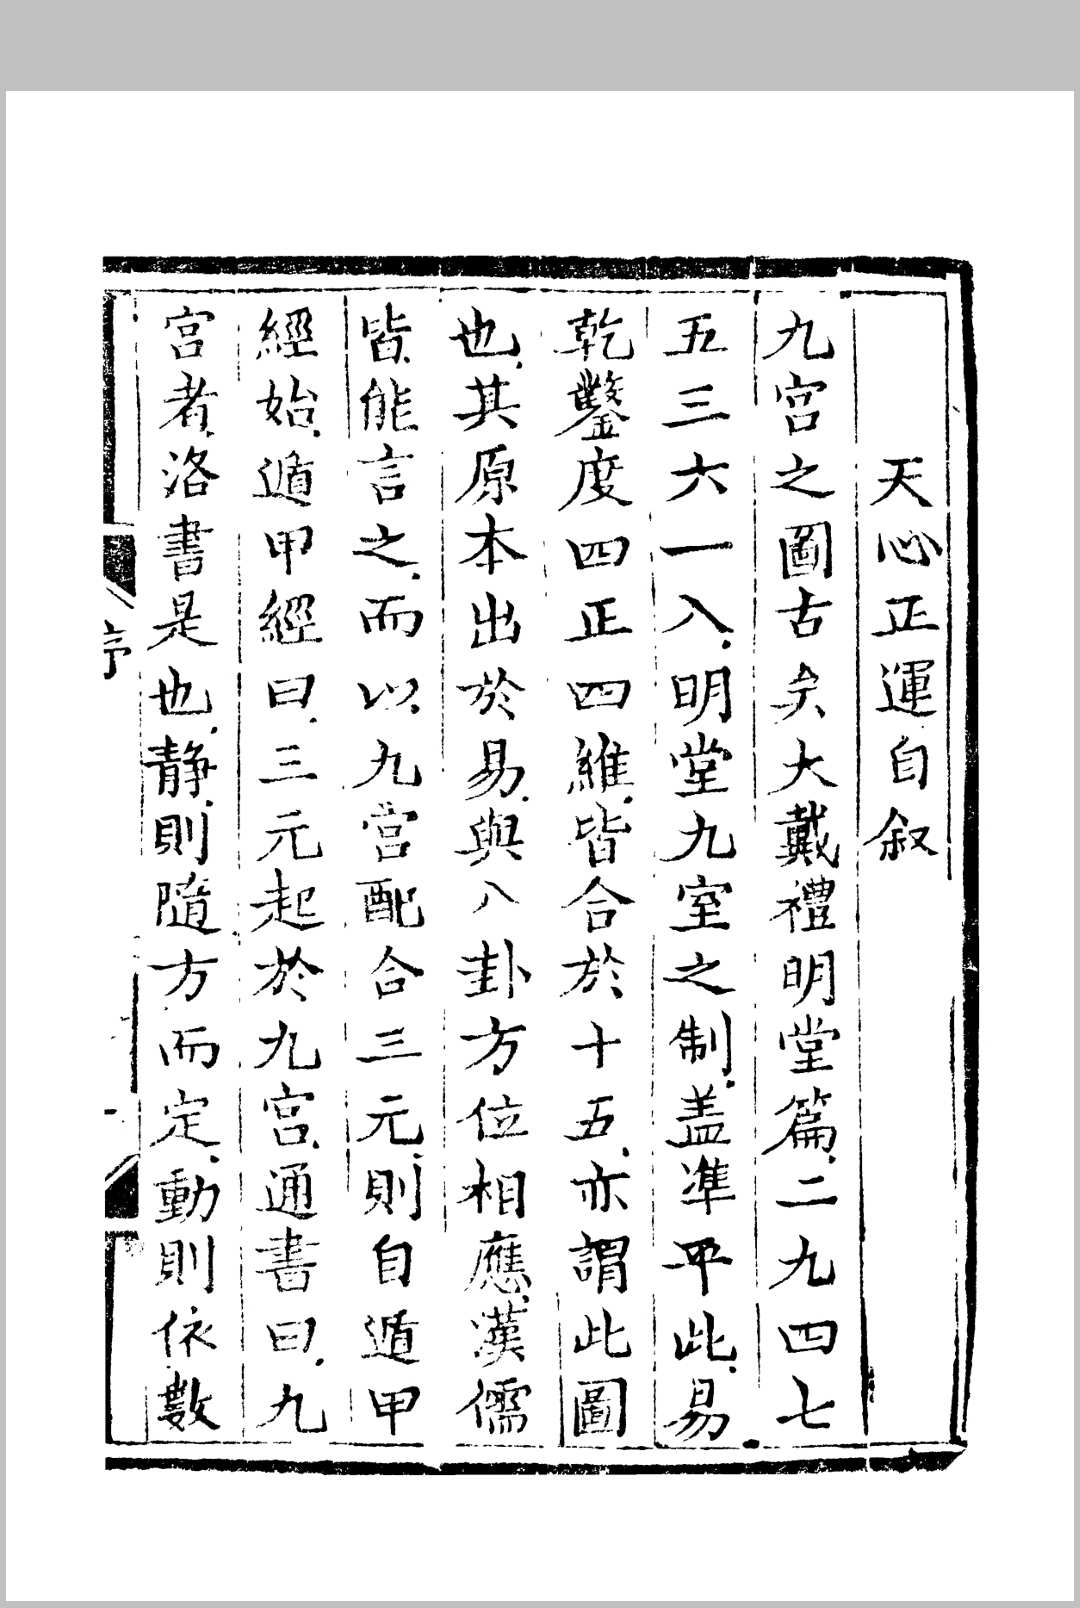 天心正運自叙
九宮之圖古矣大戴禮明堂篇、二九四七
五三六一八、明堂九室之制、盖準平此、易
乾鑿度四正四維、皆合於十五、亦謂此圖
也、其原本出於易、與八卦方位相應、漢儒
皆能言之、而以九宮配合三元、則自遁甲
經始、遁甲經曰、三元起於九宮、通書曰、九
宮者、洛書是也、静、則隨方而定、動則依數
序